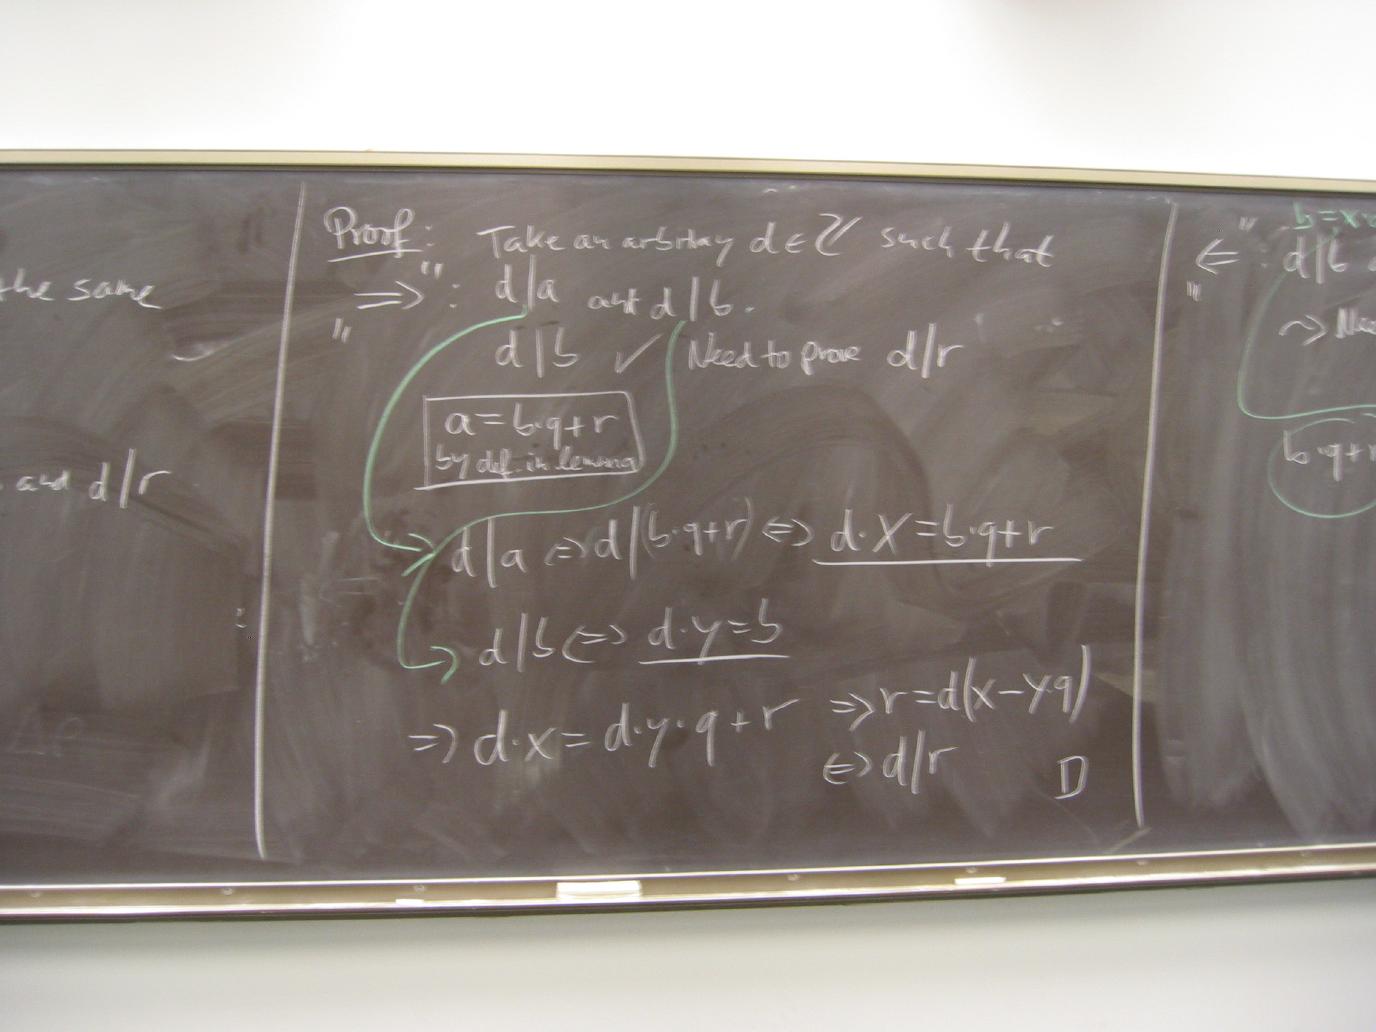 the same
and d|r
Proof: Take an arbitray d ∈ ℤ such that
"⇒": d|a and d|b.
d|b ✓ Need to prove d|r
a = b·q + r
by def. in lemma
d|a ⇔ d|(b·q+r) ⇔ d·x = b·q+r
d|b ⇔ d·y = b
⇒ d·x = d·y·q + r ⇒ r = d(x-y·q)
⇔ d|r □
b=x
"⇐": d|b
b·q+r